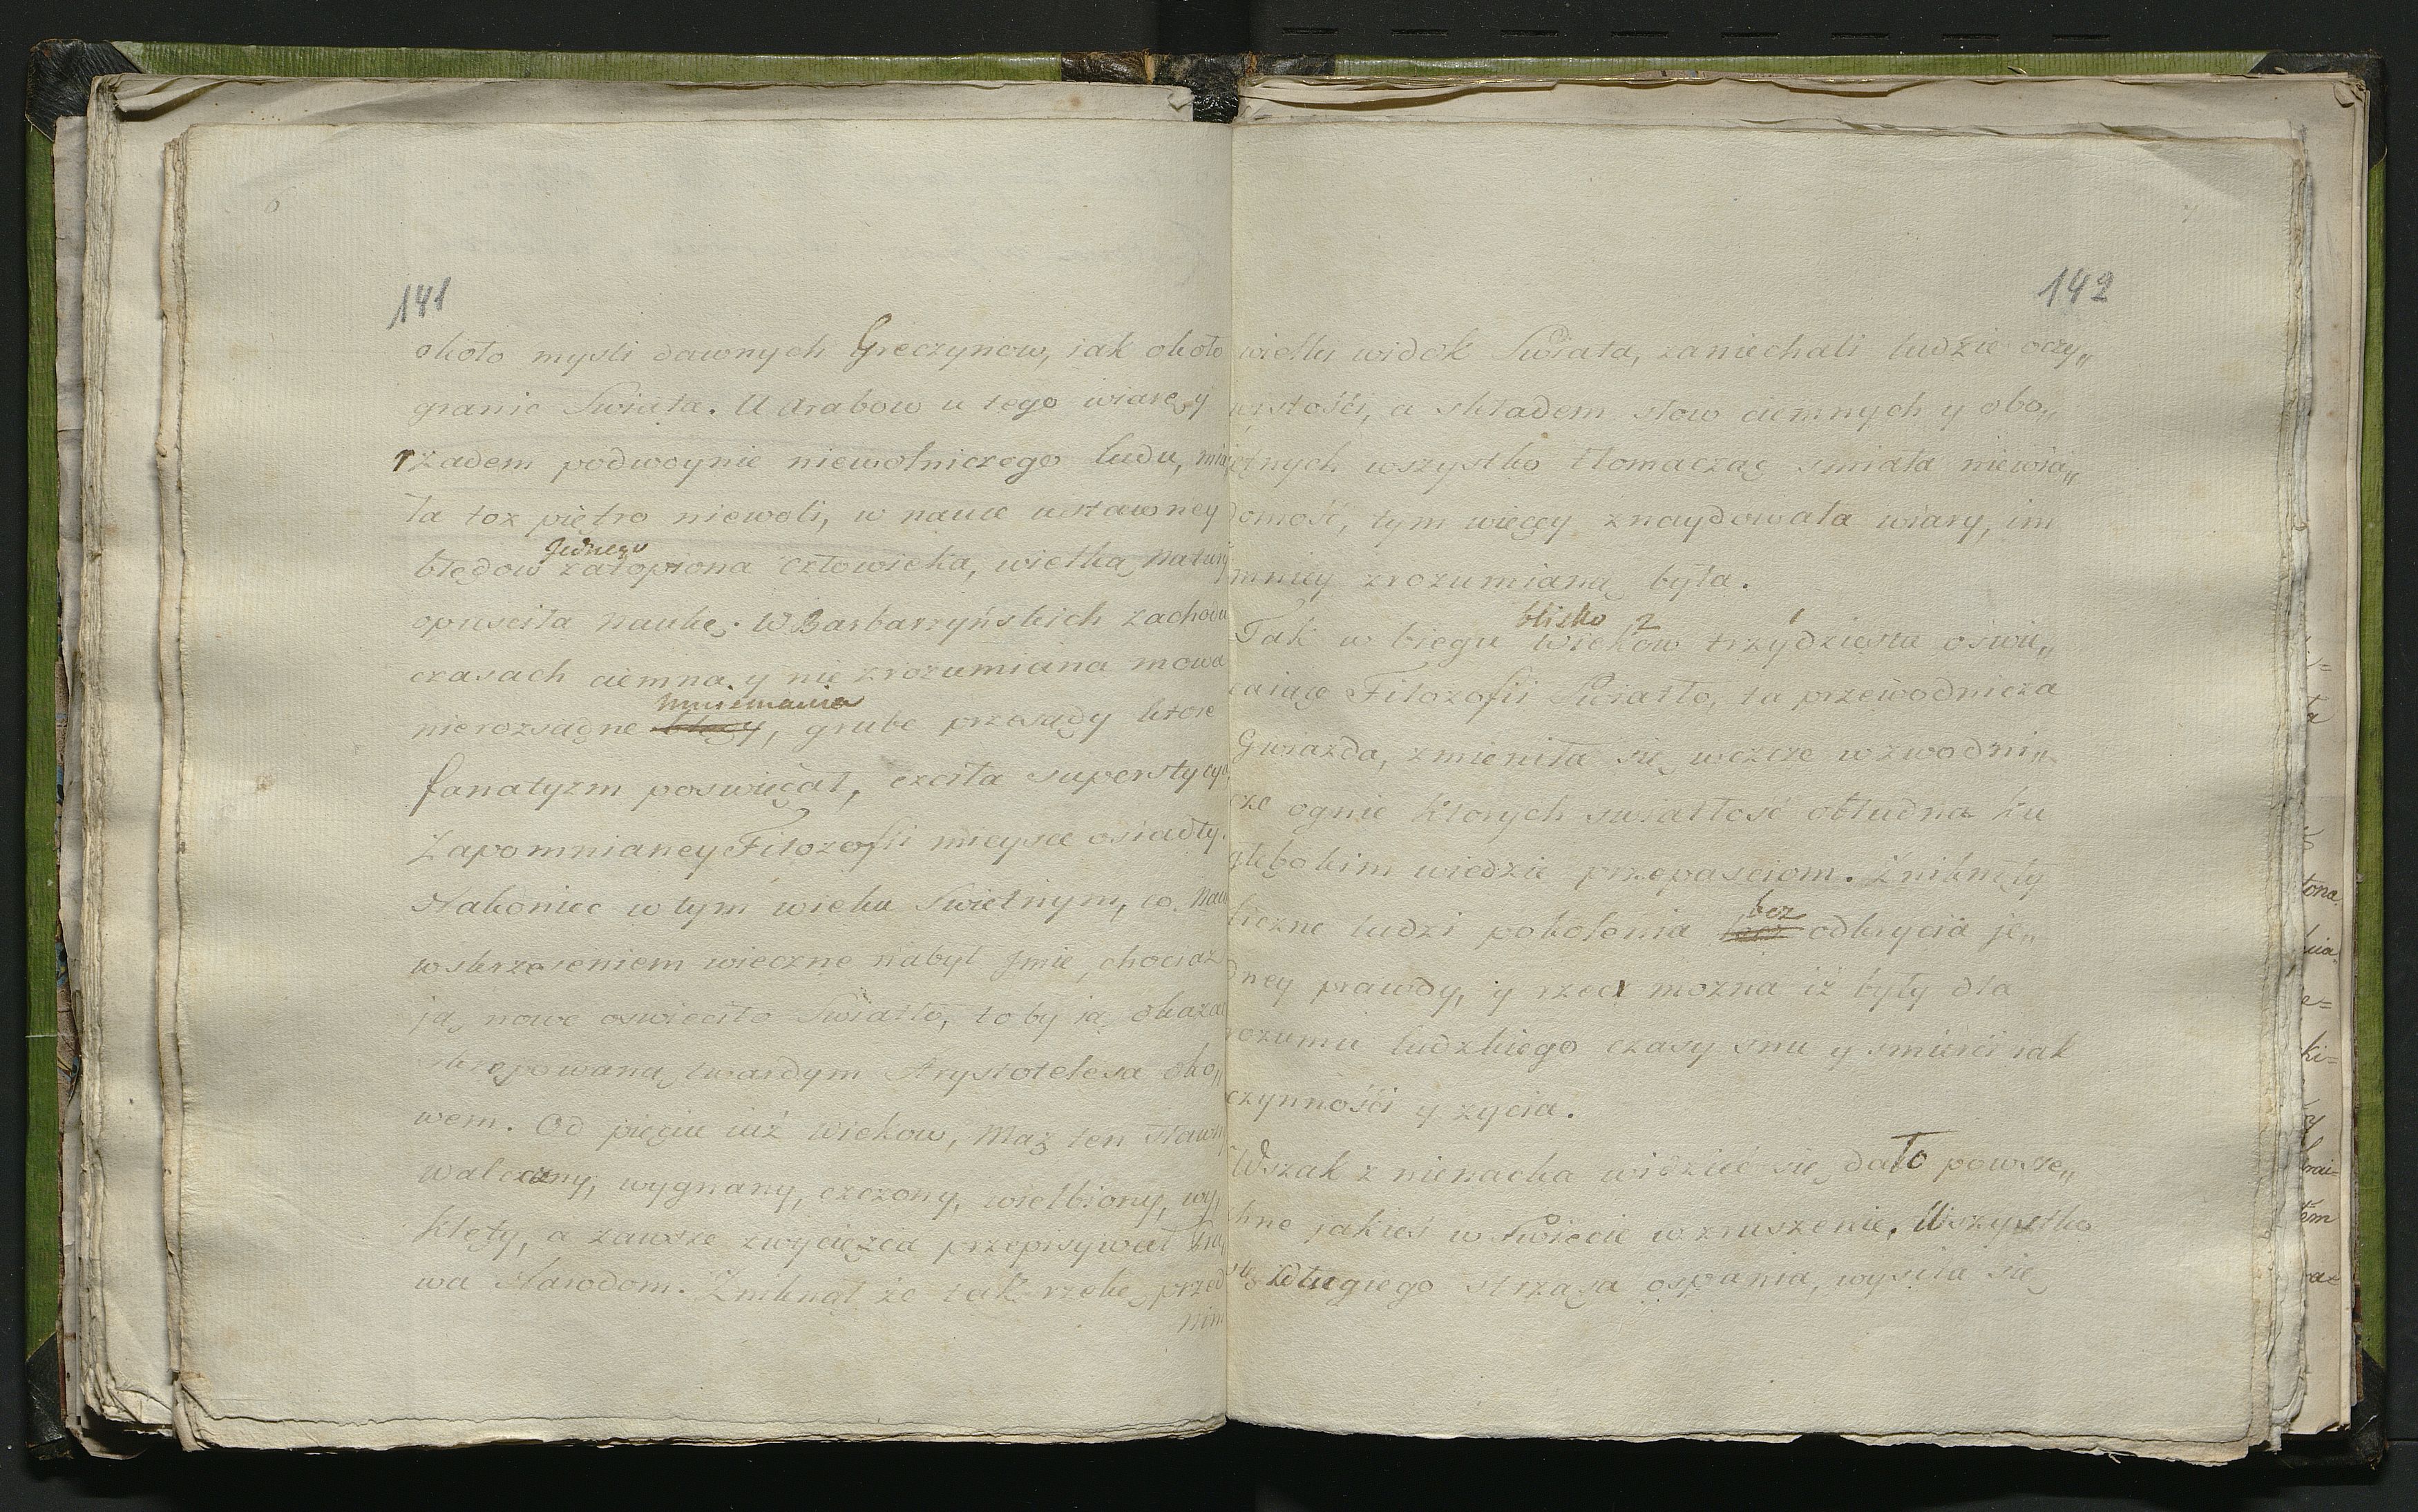 141
około mysli dawnych Greczynow, iak około
granic Swiata. U Arabow u tego wiarę y
rządem podwoynie niewolniczego ludu, mia
ła toż piętro niewoli, w nauce ustawney
Jednego
błędow zatopiona człowieka, wielką natury
opuscila naukę. W Barbarzyńskich zachodu
czasach ciemna y nie zrozumiana mowa
mniemania
nierozsądne błędy, grube przesądy ktore
fanatyzm poswięcał, czciła superstycya,
Zapomnianey Filozofii mieysce osiadły.
Nakoniec w tym wieku Swietnym, co Nauk
wskrzeseniem wieczne nabył Jmie, chociaż
ją nowe oswieciło Swiatło, to by ią okazać
skrępowaną twardym Arystotelesa oko„
wem. Od pięciu iuż Wiekow, Mąż ten sławny
walczony, wygnany, czczony, wielbiony, wy„
klęty, a zawsze zwycięzca przepisywał Pra„
wa Narodom. Zniknął że tak rzekę, przed
nim
142
wielki widok Swiata, zaniechali ludzie oczy„
wistości, a składem słow ciemnych y obo„
iętnych wszystko tłomacząc smiała niewia„
domość, tym więcey znaydowała wiary, im
mniey zrozumianą była.
blisko 2 1
Tak w biegu wiekow trzydziestu oswie„
caiące Filozofii Swiatło, ta przewodnicza
Gwiazda, zmieniła się wczcze w zwodni„
cze ognie ktorych swiatłość obłudna ku
głębokim wiedzie przepasciom. Zniknęły
bez
liczne ludzi pokolenia bez odkrycia je„
dney prawdy, y rzec można iż były dla
rozumu ludzkiego czasy snu y smierci iak
czynności y zycia.
Wszak z nienacka widzieć się dało powsze„
chne jakieś w Swiecie wzruszenie. Wszystko
się z długiego strząsa ospania, wysila się